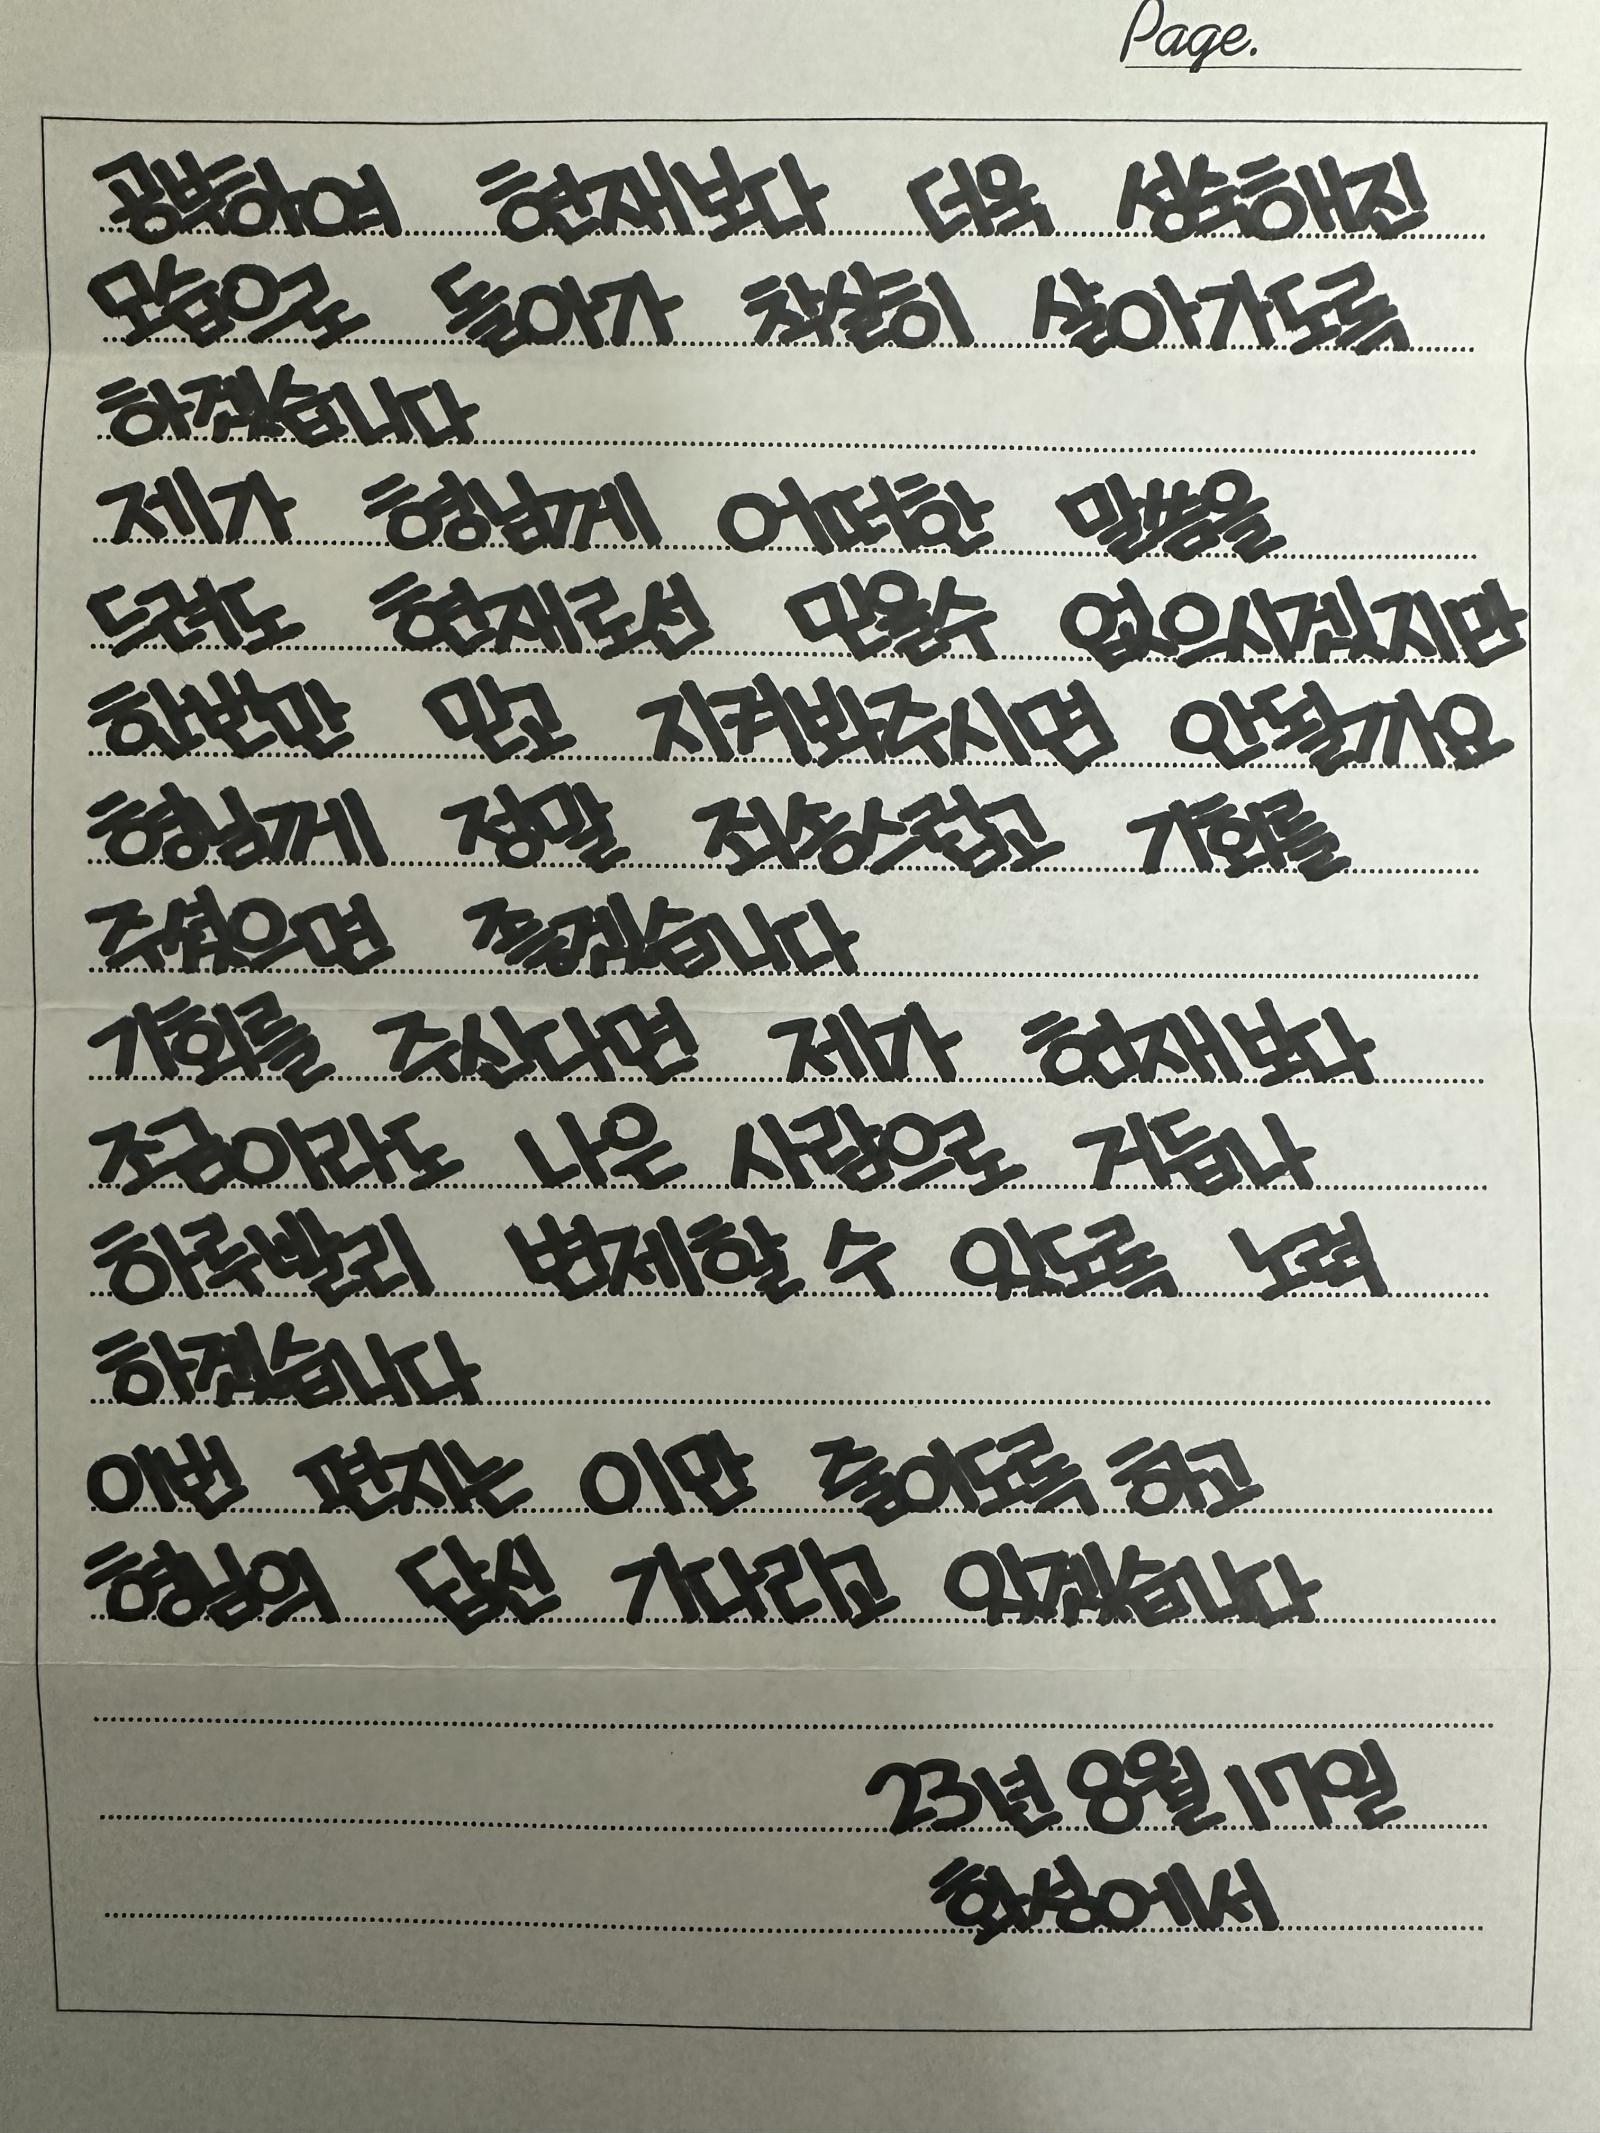 Page.
공부하여 현재보다 더욱 성숙해진
모습으로 돌아가 착실히 살아가도록
하겠습니다
제가 형님께 어떠한 말씀을
드려도 현재로선 믿을수 없으시겠지만
한번만 믿고 지켜봐주시면 안될까요
형님께 정말 죄송스럽고 기회를
주셨으면 좋겠습니다
기회를 주신다면 제가 현재보다
조금이라도 나은 사람으로 거듭나
하루빨리 변제할 수 있도록 노력
하겠습니다
이번 편지는 이만 줄이도록 하고
형님의 답신 기다리고 있겠습니다
23년 8월 17일
화성에서